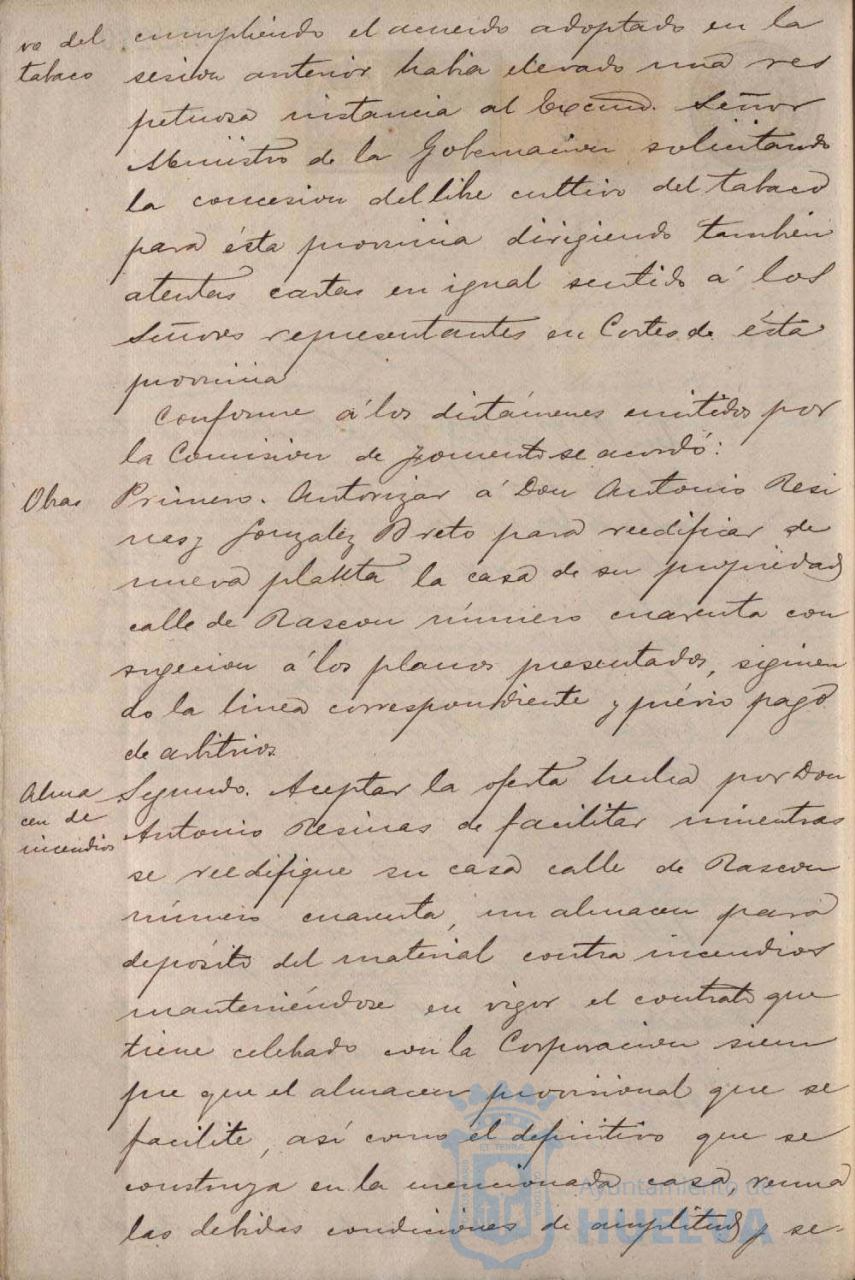 vo del
tabaco
cumpliendo el acuerdo adoptado en la
sesion anterior habia elevado una res
petuosa instancia al Excmo. Señor
Ministro de la Gobernacion solicitando
la concesion del libre cultivo del tabaco
para ésta provincia dirigiendo tambien
atentas cartas en igual sentido á los
Señores representantes en Cortes de ésta
provincia
Conforme á los dictámenes emitidos por
la Comision de Fomento se acordó:
Obras
Primero. Autorizar á Don Antonio Resi
nas y Gonzalez para reedificar de
nueva planta la casa de su propiedad
calle de Rascon número cuarenta con
sugecion á los planos presentados, siguien
do la linea correspondiente y prévio pago
de arbitrios.
Alma
cen de
incendios
Segundo. Aceptar la oferta hecha por Don
Antonio Resinas de facilitar mientras
se reedifique su casa calle de Rascon
número cuarenta, un almacen para
depósito del material contra incendios
manteniéndose en vigor el contrato que
tiene celebrado con la Corporacion siem
pre que el almacen provisional que se
facilite, así como el definitivo que se
construya en la mencionada casa, reuna
las debidas condiciones de amplitud y se-
Ayuntamiento de
HUELVA